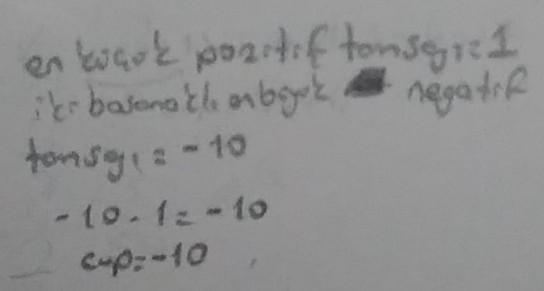 en küçük pozitif tamsayı = 1
iki basamaklı en büyük negatif
tamsayı = -10
-10 . 1 = -10
cvp = -10